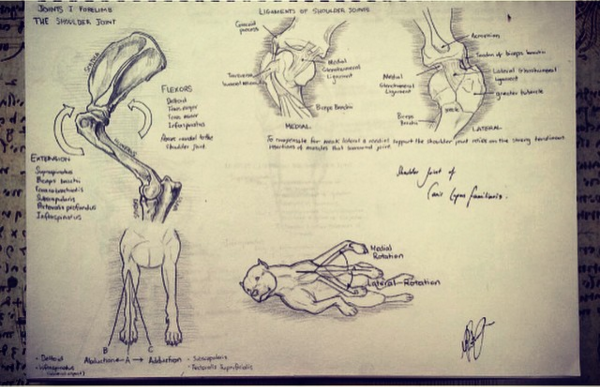 JOINTS I FORELIMB
THE SHOULDER JOINT
SCAPULA
HUMERUS
FLEXORS
Deltoid
Teres major
Teres minor
Infraspinatus
joint
EXTENSION
Supraspinatus
Biceps brachii
Subscapularis
Infraspinatus
LIGAMENTS OF SHOULDER JOINTS
process
Medial
Glenohumeral
Ligament
Biceps Brachii
MEDIAL
Acromion
Tendon of biceps brachii
Lateral Glenohumeral
Ligament
greater tubercle
Medial
Glenohumeral
Ligament
Biceps
Brachii
LATERAL
To compensate for weak lateral & medial support the shoulder joint relies on the strong tendinous
insertions of muscles that surround joint.
Shoulder Joint of
Canis Lupus familiaris.
Medial
Rotation
Lateral Rotation
B
C
Abduction ← A → Adduction
- Deltoid
- Infraspinatus
- Subscapularis
- Pectoralis Superficialis